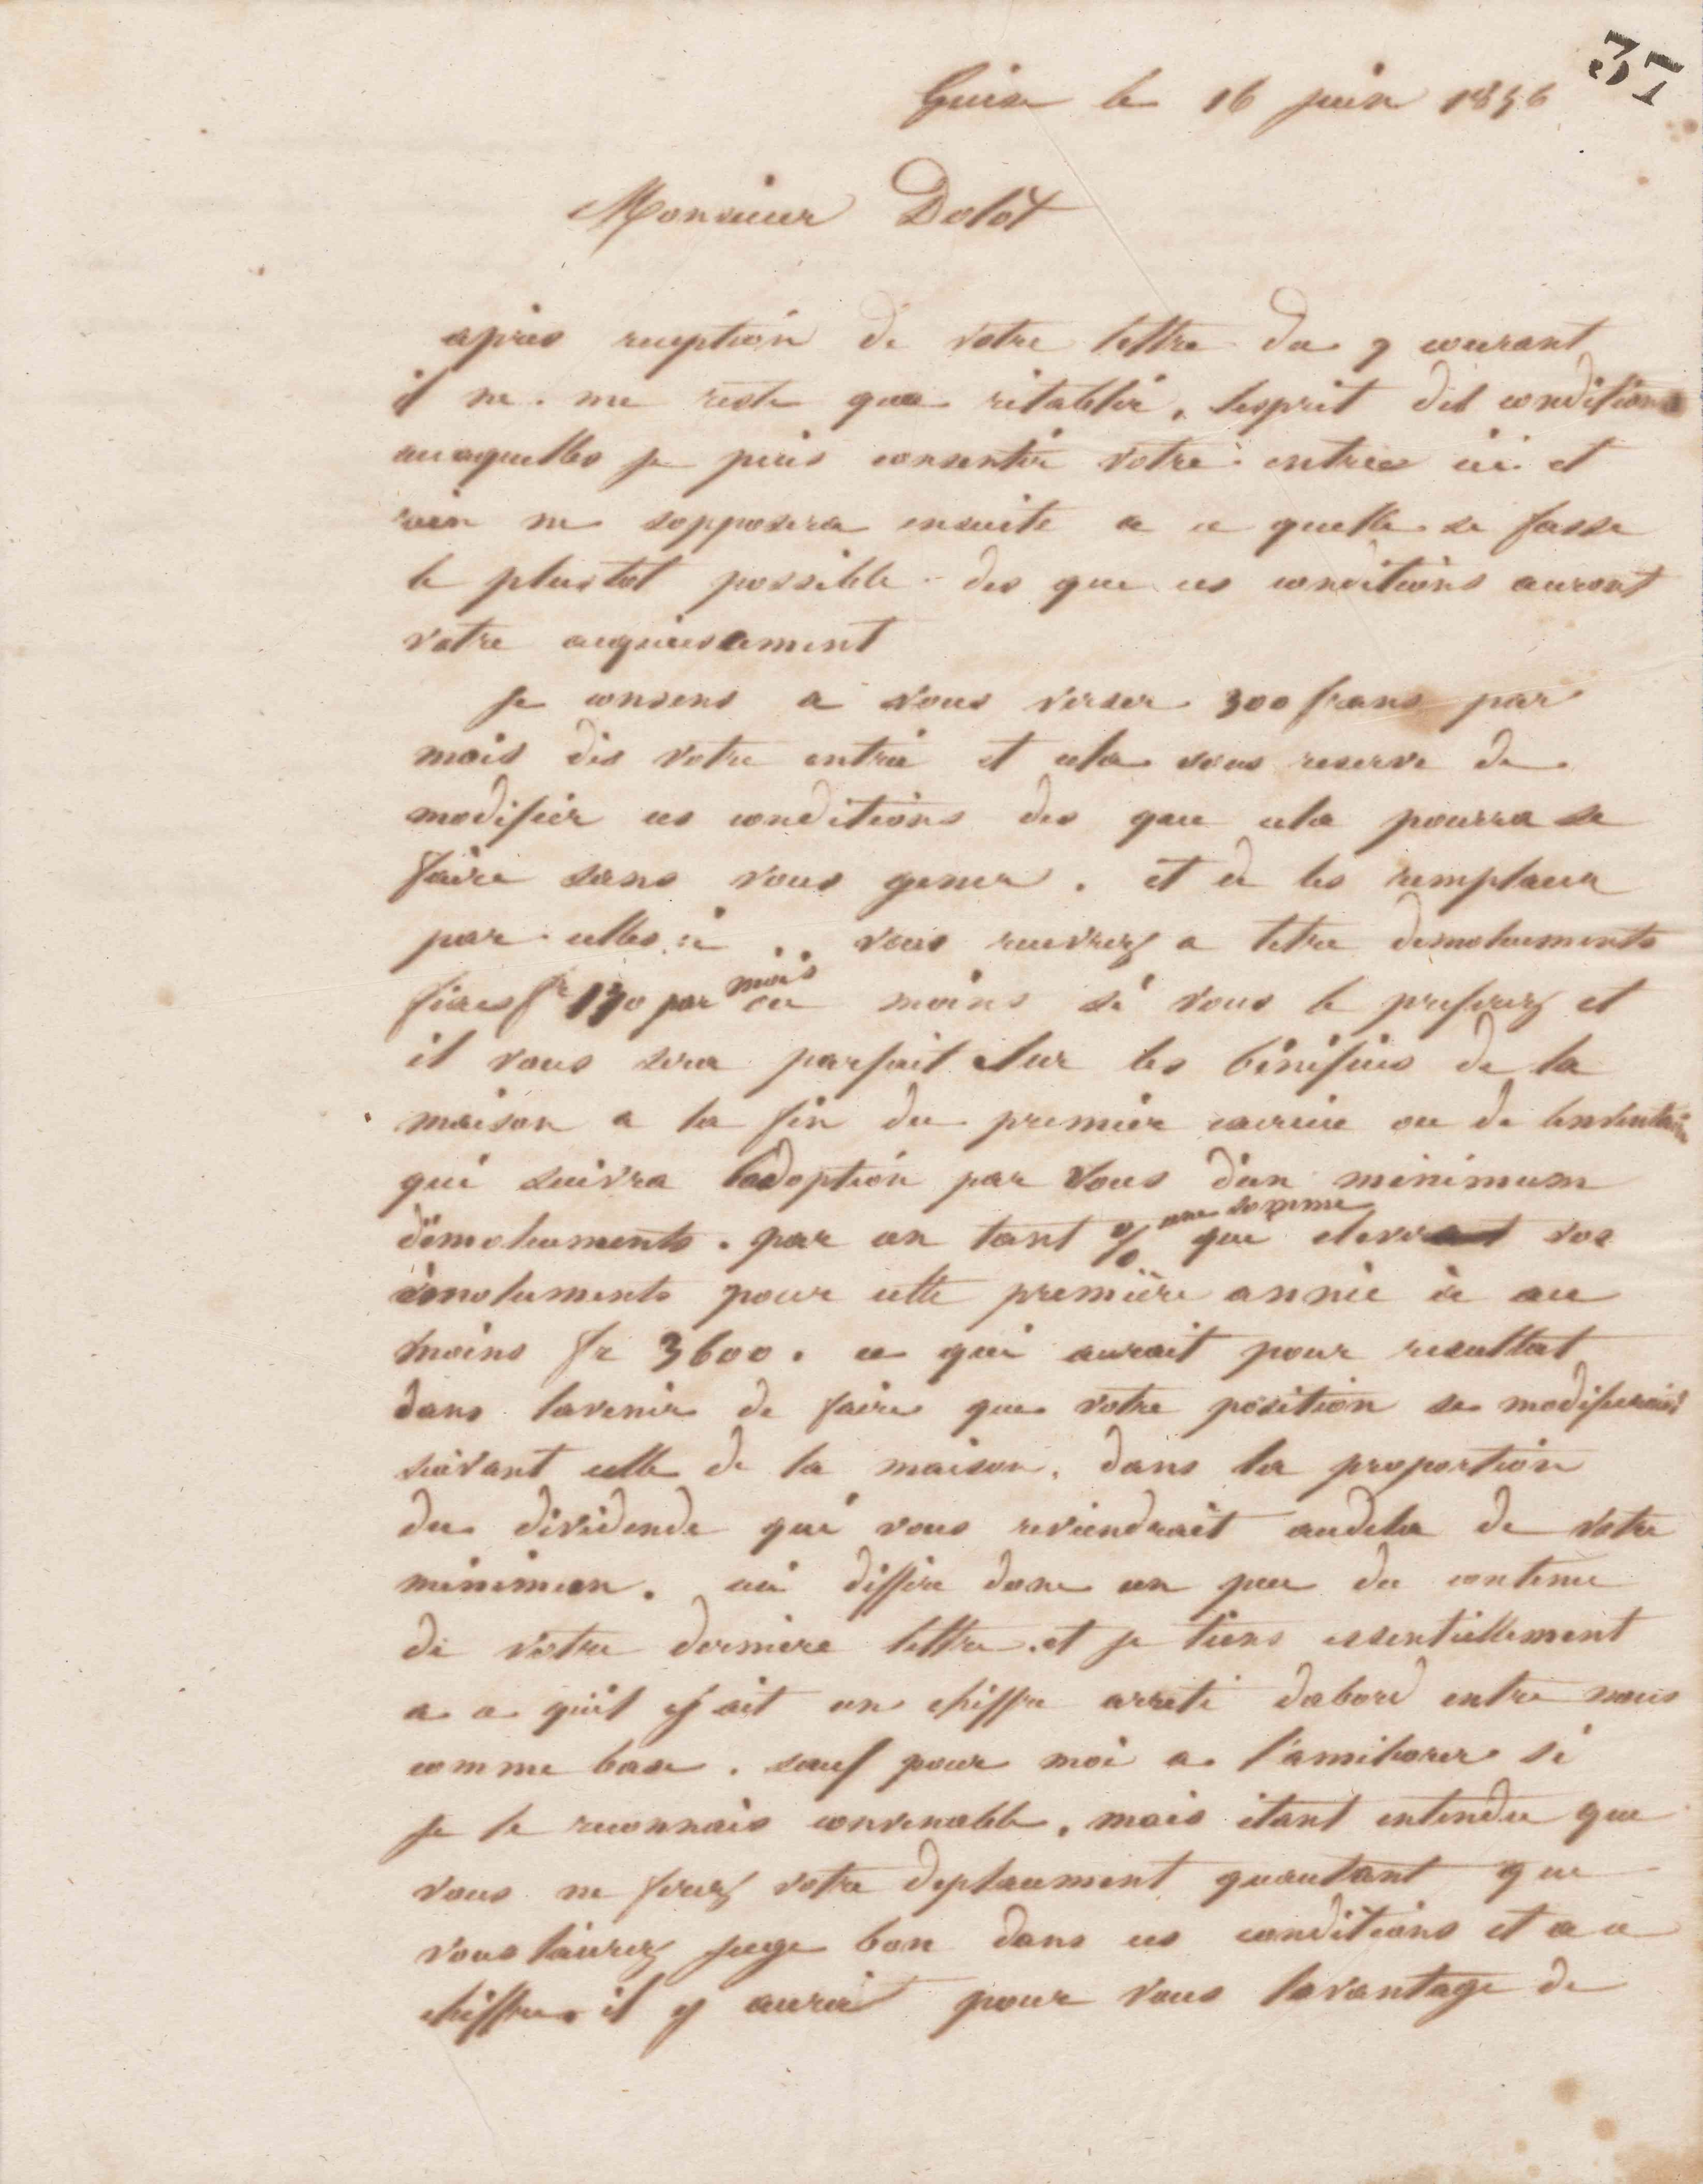 37
Guise le 16 juin 1856
Monsieur Dolot
après reception de votre lettre du 9 courant
il ne me reste qua rétablir, lesprit des conditions
auxquelles je puis consentir votre entrée ici et
rien ne sopposera ensuite a ce quelle se fasse
le plustot possible des que ces conditions auront
votre acquiescement
Je consens a vous verser 300 francs par
mois dès votre entrée et cela sous reserve de
modifier ces conditions des que cela pourra se
faire sans vous gener. et de les remplacer
par celles ci .. vous recevrez a titre démoluments
fixes fr 150 par mois ou moins si vous le preferez et
il vous sera parfait sur les bénéfices de la
maison a la fin du premier exercice ou de linventaire
qui suivra ladoption par vous dun minimum
démoluments. par un tant % une somme que elevera vos
émoluments pour cette première année à au
moins fr 3600. ce qui aurait pour resultat
dans lavenir de faire que votre position se modifierait
suivant celle de la maison, dans la proportion
du dividende qui vous reviendrait audela de votre
minimum. ceci diffère donc un peu du contenu
de votre dernière lettre. et je tiens essentiellement
a ce quil y ait un chiffre arreté dabord entre nous
comme base. sauf pour moi a l'améliorer si
je le reconnais convenable. mais étant entendu que
vous ne ferez votre deplacement quautant que
vous laurez jugé bon dans ces conditions et a ce
chiffre. il y aurait pour vous lavantage de